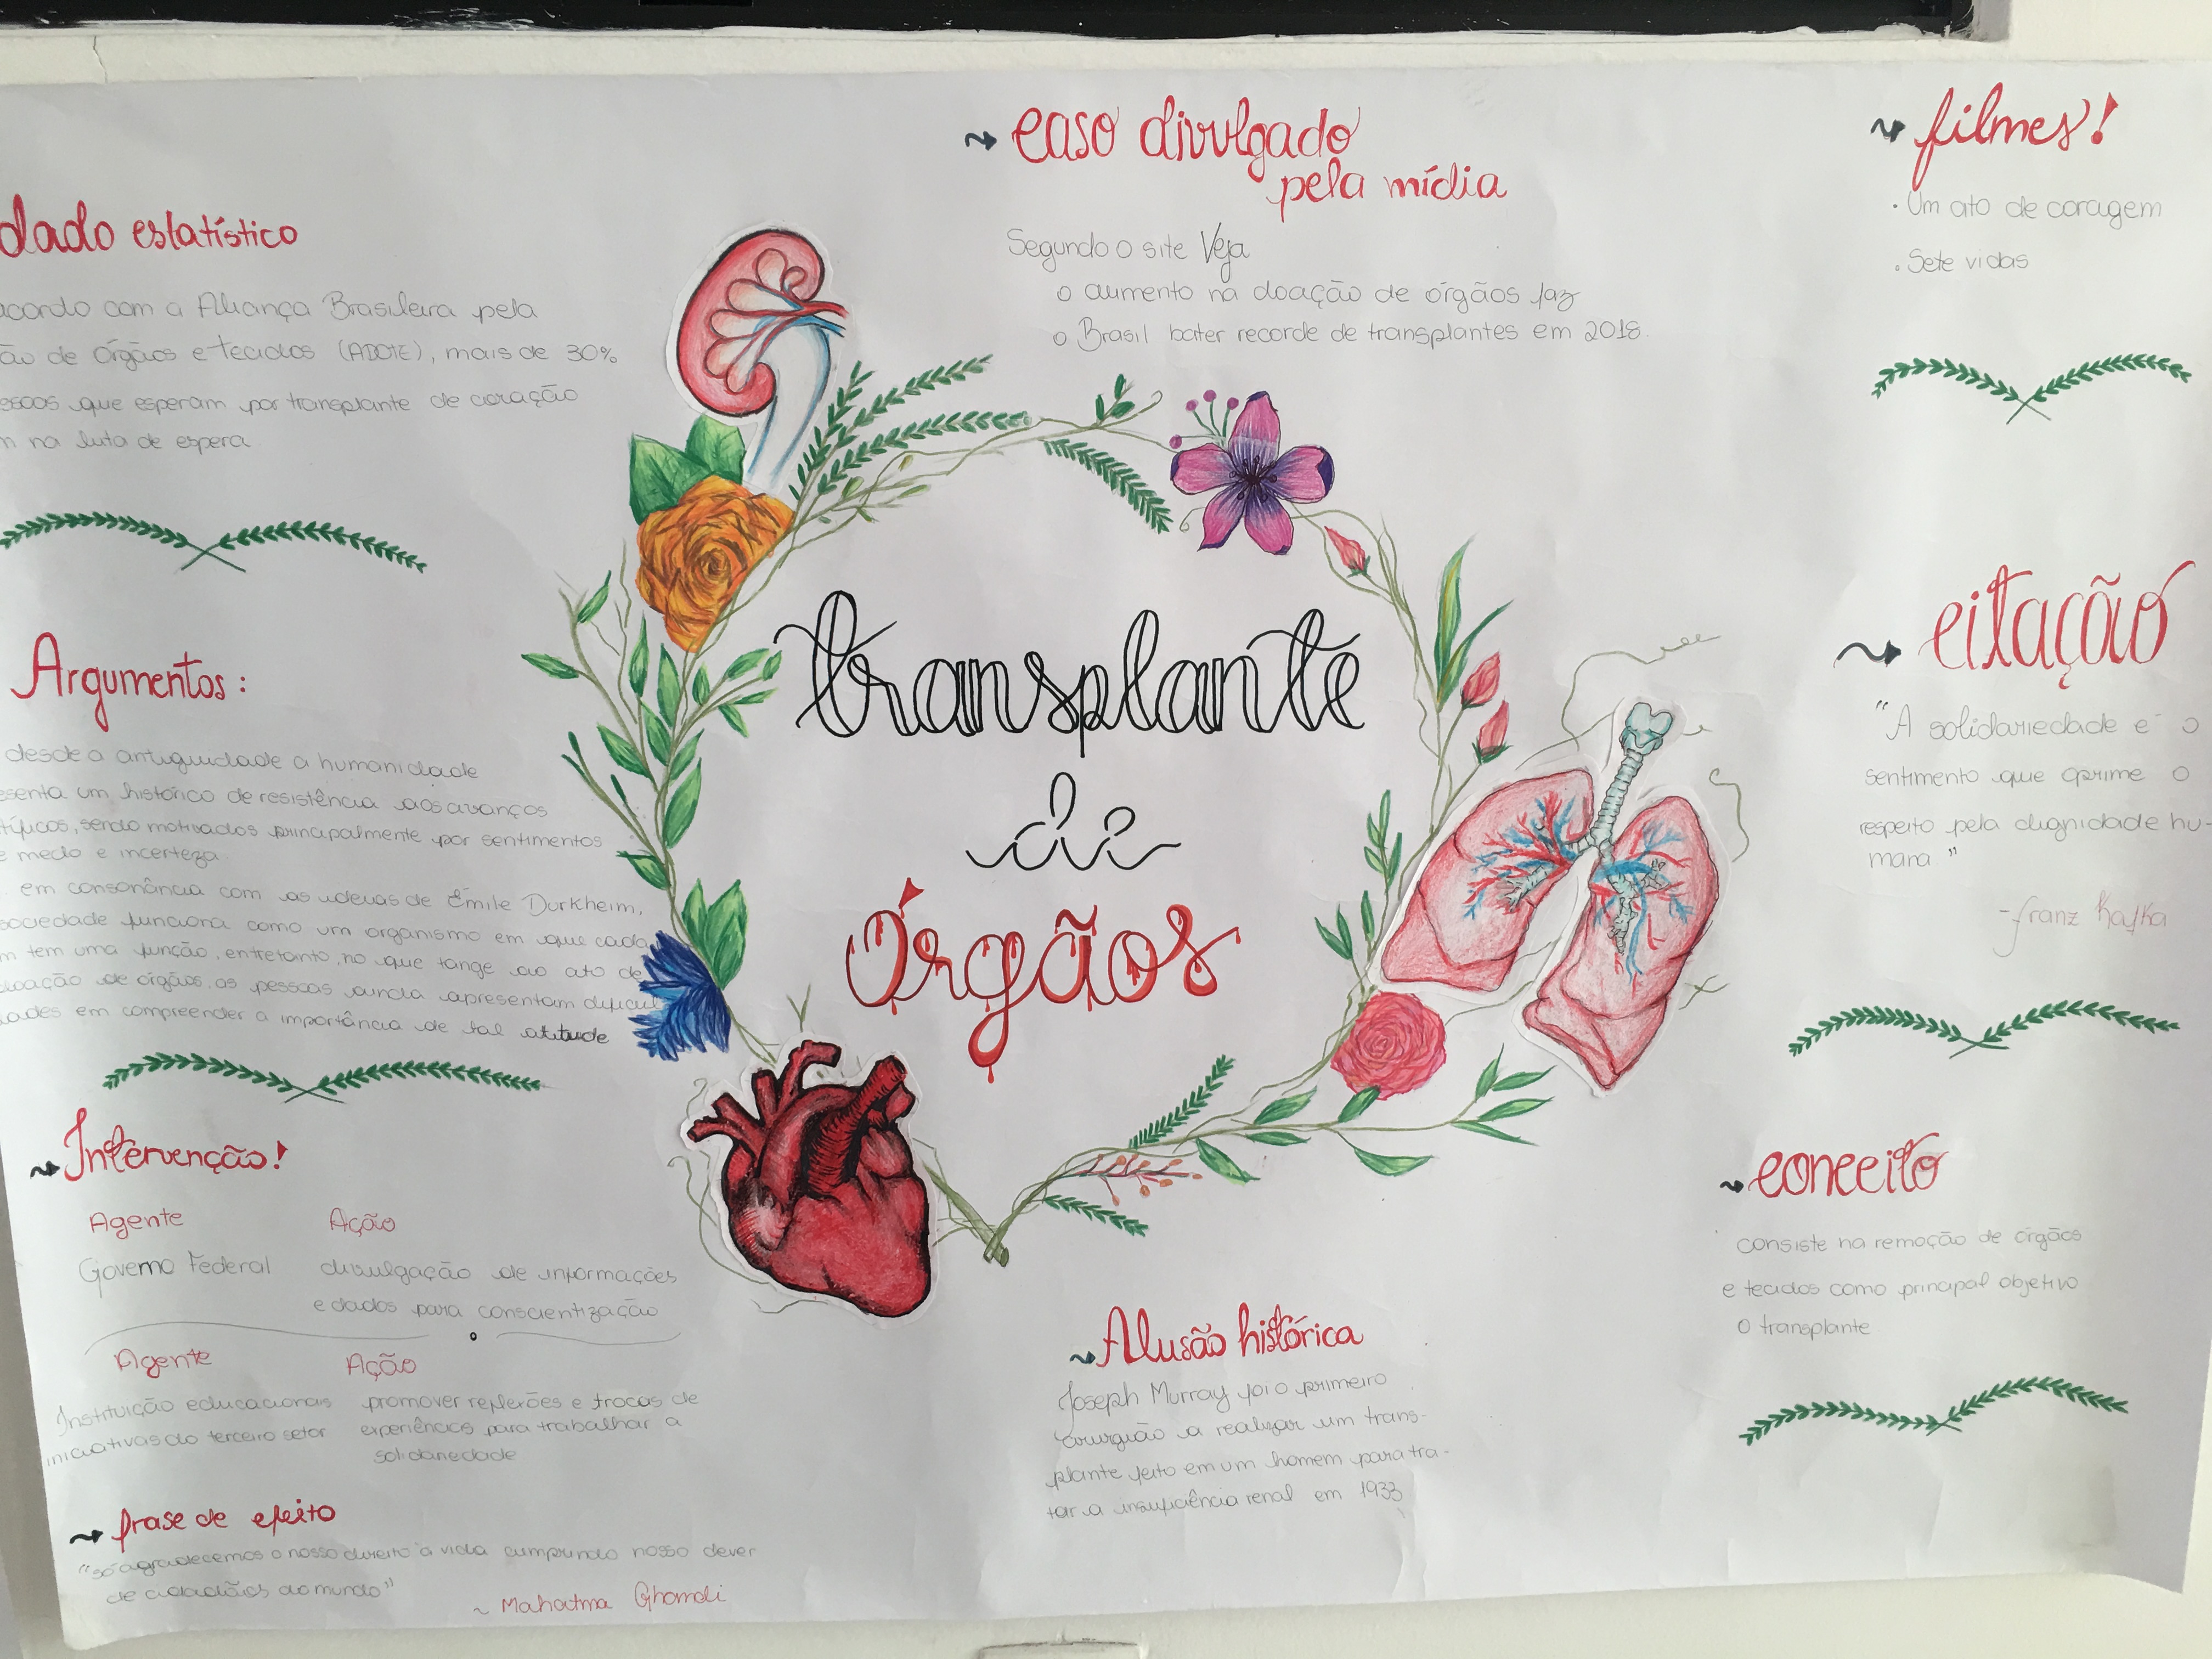 dado estatístico
acordo com a Aliança Brasileira pela
ão de Órgãos e tecidos (ADOTE), mais de 30%
essoas que esperam por transplante de coração
m na luta de espera
Argumentos:
desde a antiguidade a humanidade
esenta um histórico de resistência aos avanços
tíficos, sendo motivados principalmente por sentimentos
e medo e incerteza.
em consonância com as ideias de Émile Durkheim,
sociedade funciona como um organismo em que cada
m tem uma função, entretanto, no que tange ao ato de
doação de órgãos, as pessoas ainda apresentam dificul
dades em compreender a importância de tal atitude
Intervenção!
Agente Ação
Governo Federal divulgação de informações
e dados para conscientização
Agente Ação
Instituição educacionais promover reflexões e trocas de
iniciativas do terceiro setor experiências para trabalhar a
solidariedade
frase de efeito
"só agradecemos o nosso direito à vida cumprindo nosso dever
de cidadãos do mundo"
~ Mahatma Ghandi
caso divulgado
pela mídia
Segundo o site Veja
o aumento na doação de órgãos faz
o Brasil bater recorde de transplantes em 2018.
transplante
de
Órgãos
Alusão histórica
Joseph Murray foi o primeiro
cirurgião a realizar um trans-
plante feito em um homem para tra-
tar a insuficiência renal em 1933
filmes!
• Um ato de coragem
• Sete vidas
citação
"A solidariedade é o
sentimento que exprime o
respeito pela dignidade hu-
mana."
-franz Kafka
conceito
consiste na remoção de órgãos
e tecidos como principal objetivo
o transplante